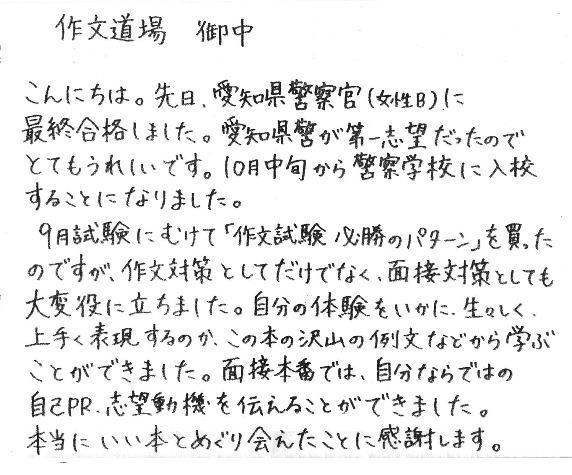 作文道場　御中
こんにちは。先日、愛知県警察官(女性B)に
最終合格しました。愛知県警が第一志望だったので
とてもうれしいです。10月中旬から警察学校に入校
することになりました。
9月試験にむけて「作文試験 必勝のパターン」を買った
のですが、作文対策としてだけでなく、面接対策としても
大変役に立ちました。自分の体験をいかに、生々しく、
上手く表現するのか、この本の沢山の例文などから学ぶ
ことができました。面接本番では、自分ならではの
自己PR、志望動機を伝えることができました。
本当にいい本とめぐり会えたことに感謝します。